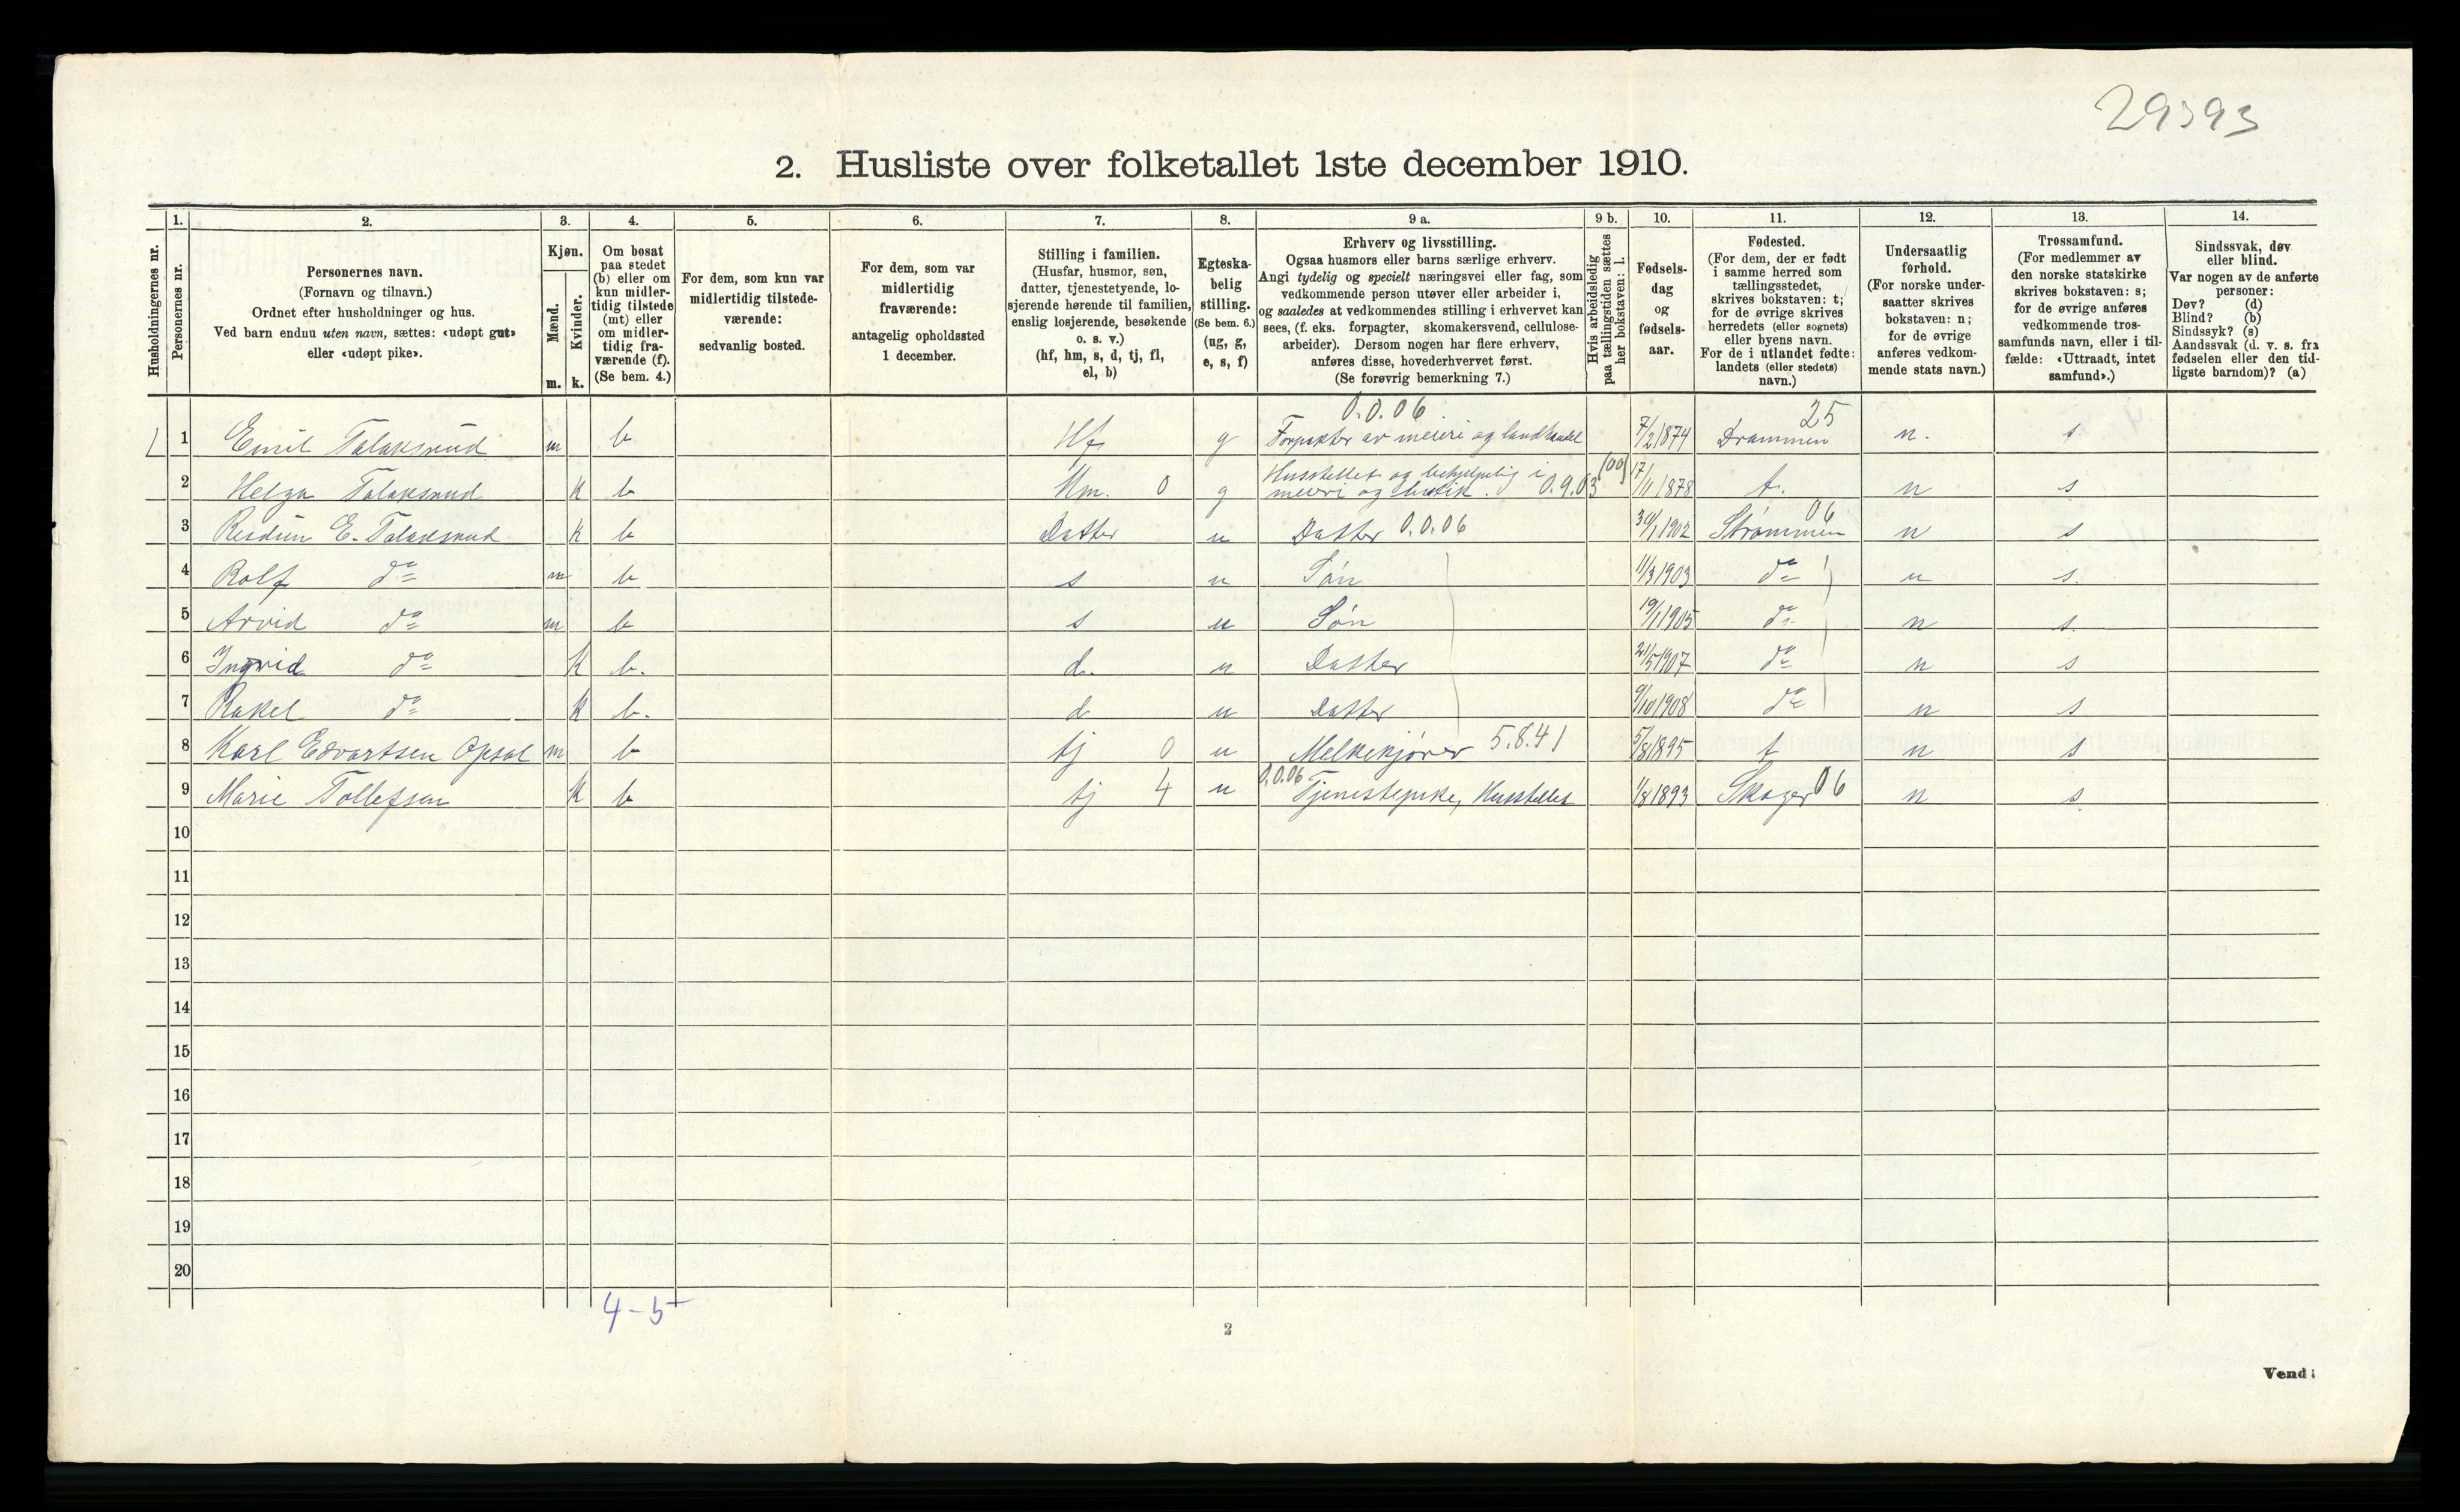 29393
2. Husliste over folketallet 1ste december 1910.
Husholdningernes nr.
1.
Personernes nr.
2.
Personernes navn.
(Fornavn og tilnavn.)
Ordnet efter husholdninger og hus.
Ved barn endnu uten navn, sættes: «udøpt gut»
eller «udøpt pike».
3.
Kjøn.
Mænd.
Kvinder.
m. k.
4.
Om bosat
paa stedet
(b) eller om
kun midler-
tidig tilstede
(mt) eller
om midler-
tidig fra-
værende (f).
(Se bem. 4.)
5.
For dem, som kun var
midlertidig tilstede-
værende:
sedvanlig bosted.
6.
For dem, som var
midlertidig
fraværende:
antagelig opholdssted
1 december.
7.
Stilling i familien.
(Husfar, husmor, søn,
datter, tjenestetyende, lo-
sjerende hørende til familien,
enslig losjerende, besøkende
o. s. v.)
(hf, hm, s, d, tj, fl,
el, b)
8.
Egteska-
belig
stilling.
(Se bem. 6.)
(ug, g,
e, s, f)
9 a.
Erhverv og livsstilling.
Ogsaa husmors eller barns særlige erhverv.
Angi tydelig og specielt næringsvei eller fag, som
vedkommende person utøver eller arbeider i,
og saaledes at vedkommendes stilling i erhvervet kan
sees, (f. eks. forpagter, skomakersvend, cellulose-
arbeider). Dersom nogen har flere erhverv,
anføres disse, hovederhvervet først.
(Se forøvrig bemerkning 7.)
9 b.
Hvis arbeidsledig
paa tællingstiden sættes
her bokstaven: l.
10.
Fødsels-
dag
og
fødsels-
aar.
11.
Fødested.
(For dem, der er født
i samme herred som
tællingsstedet,
skrives bokstaven: t;
for de øvrige skrives
herredets (eller sognets)
eller byens navn.
For de i utlandet fødte:
landets (eller stedets)
navn.)
12.
Undersaatlig
forhold.
(For norske under-
saatter skrives
bokstaven: n;
for de øvrige
anføres vedkom-
mende stats navn.)
13.
Trossamfund.
(For medlemmer av
den norske statskirke
skrives bokstaven: s;
for de øvrige anføres
vedkommende tros-
samfunds navn, eller i til-
fælde: «Uttraadt, intet
samfund».)
14.
Sindssvak, døv
eller blind.
Var nogen av de anførte
personer:
Døv? (d)
Blind? (b)
Sindssyk? (s)
Aandssvak (d. v. s. fra
fødselen eller den tid-
ligste barndom)? (a)
0.0.06 25
1 1 Emil Talaksrud m b Hf g Forpakter av meieri og landhandel 7/2 1874 Drammen n. s.
2 Helga Talaksrud k b Hm. 0 g Husstellet og behjelpelig i
meieri og butik. 0.9.03 (00) 17/11 1878 t. n s
3 E. Talaksrud k b Datter u Datter 0.0.06 30/1 1902 Strømmen 06 n s
4 Rolf do m b s u Søn 11/3 1903 do n s.
5 Arvid do m b s u Søn 19/1 1905 do n s.
6 Ingrid do k b. d. u Datter 21/5 1907 do n s
7 Rakel do k b. d u Datter 9/10 1908 do n s
8 Karl Edvartsen Opsal m b tj 0 u Melkekjører 5.8.41 5/8 1895 t n s
9 Marie Tollefsen k b tj 4 u 0.0.06 Tjenestepike, Husstellet 1/8 1893 Skoger 06 n s
10
11
12
13
14
15
16
17
18
19
20
4 - 5
2
Vend!